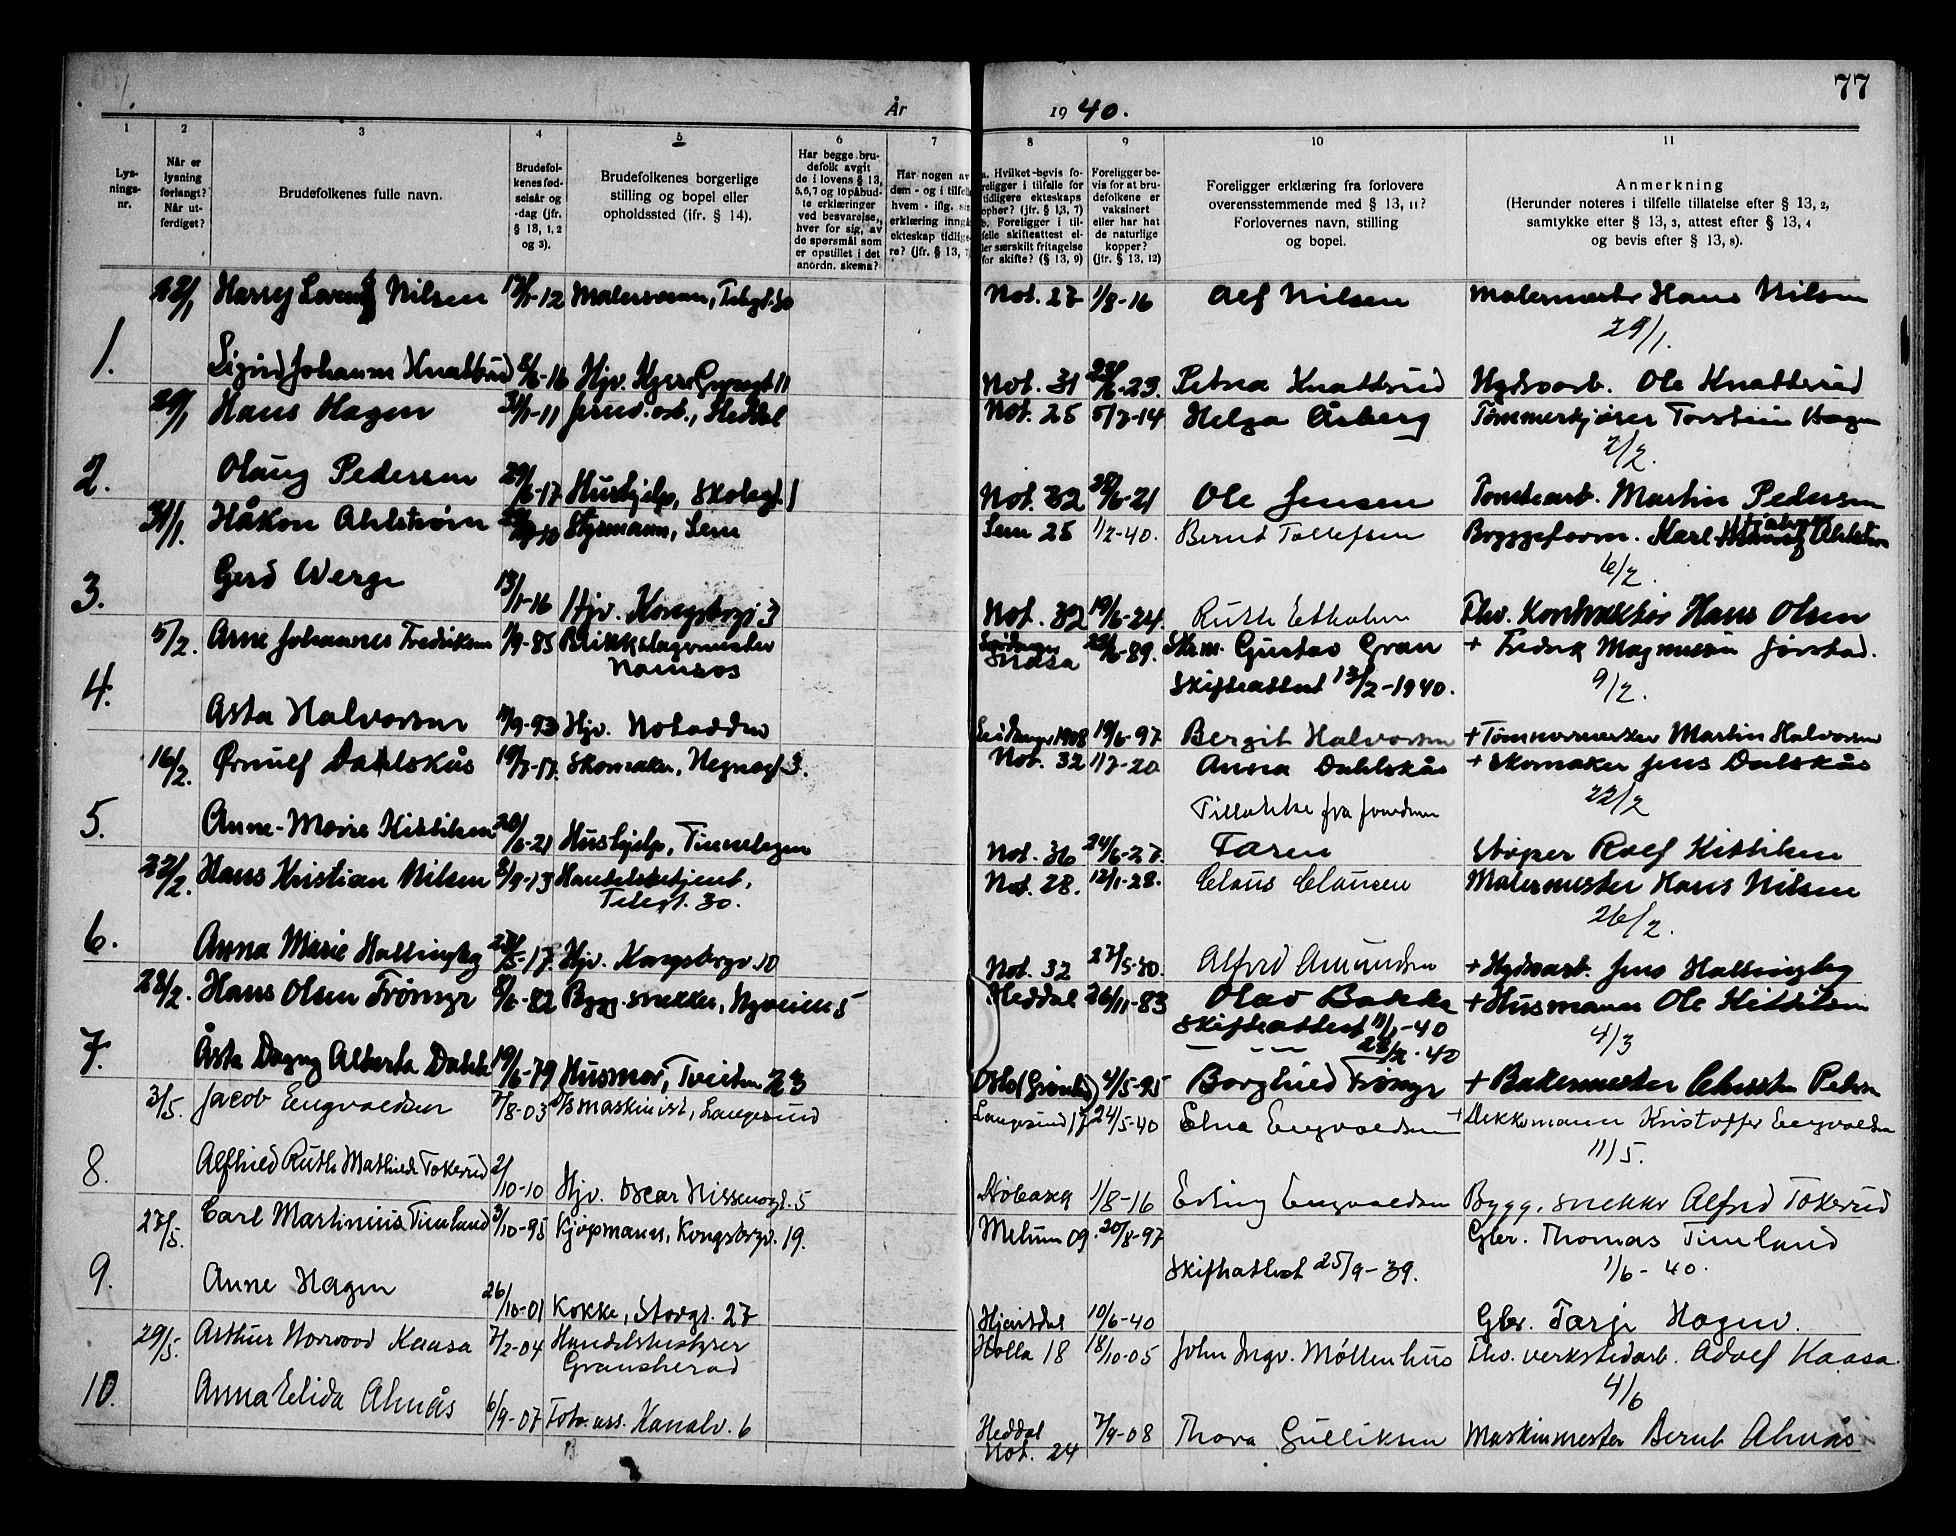 77
År 1940.
1 2 3 4 5 6 7 8 9 10 11
Lys-
nings-
nr.
Når er
lysning
forlangt?
Når ut-
ferdiget?
Brudefolkenes fulle navn.
Brudefol-
kenes fød-
selsår og
-dag (jfr.
§ 13, 1, 2
og 3).
Brudefolkenes borgerlige
stilling og bopel eller
opholdssted (ifr. § 14).
Har begge bru-
defolk avgit
de i lovens § 13,
5, 6, 7 og 10 påbud-
te erklæringer
ved besvarelse,
hver for sig, av
de spørsmål som
er opstillet i det
anordn. skema?
Har nogen av
dem - og i tilfelle
hvem - iflg. sin
erklæring inngå
ekteskap tidlige-
re? (jfr. § 13, 7
a. Hvilket bevis fo-
religger i tilfelle for
tidligere ekteskaps
opher? (jfr. § 13, 7)
b. Foreligger i til-
felle skifteattest el-
ler særskilt fritagelse
for skifte? (§ 13, 9)
Foreligger be-
vis for at bru-
defolkene er
vaksinert
eller har hat
de naturlige
kopper?
(jfr. § 13, 12)
Foreligger erklæring fra forlovere
overensstemmende med § 13, 11?
Forlovernes navn, stilling
og bopel.
Anmerkning
(Herunder noteres i tilfelle tillatelse efter § 13, 2,
samtykke efter § 13, 3, attest efter § 13, 4
og bevis efter § 13, 8).
22/1 Harry Nilsen -12 Malersvenn, Telegt. 30 Not. 27 1/8-16 Alf Nilsen Malermester Hans Nilsen
29/1.
1. Sigrid Johanne Knattrud 6-16 Hjv. 11 Not. 31 6-23. Petra Knattrud Hydroarb. Ole Knatterud
29/1 Hans Hagen -11 Jernv.arb., Heddal Not. 25 5/7-14 Helga Åsberg Tømmerkjører Torstein Hagen
2/2.
2. Olaug Pedersen 29/6-17. Hushjelp, Skolegt. 1 Not. 32 6-21 Ole Jensen Tomtearb. Martin Pedersen
31/1. Håkon Ahlstrøm Styrmann, Sem Sem 25 1/2-40. Bernt Tollefsen Byggeform. Karl
6/2.
3. Gerd Werge 13/1-16 Hjv. Kongsbrgv. 3 Not. 32 19/6-24. Ruth Fhv. Kontraktør Hans Olsen
5/2. Arne Johannes Fredriksen 1/9-85 Blikkslagermester Snåsa 6-89. Gustav Gran + Fredrik Magnussen Jørstad.
Namsos Skifteattest 13/2-1940. 9/2.
4. Asta Halvorsen 9-93 Hjv. Notodden 1908 19/6-97 Bergit Halvorsen + Tømmermester Martin Halvorsen
16/2. Ørnulf Dahlskås 19/7-17. Skomaker, Hegnagt. 3. Not. 32 1/7-20 Anna Dahlskås + Skomaker Jens Dalskås
Tillatelse fra 22/2
5. Anne-Marie Kittilsen 20/6-21 Hushjelp, Tinnebyen Not. 36 24/6-27. Faren Støper Rolf Kittilsen
22/2. Hans Kristian Nilsen 9-13 Handelsbetjent, Not. 28. 12/1-28. Claus Clausen Malermester Hans Nilsen
Telegt. 30. 26/2.
6. Anna Marie Hallingby 5-17. Hjv. Kongsbrgv. 10 Not. 32 27/5-30. Alfred Amundsen + Hydroarb. Jens Hallingby
28/2. Hans Olsen Frømyr 8/6-82 Bygg.snekker, Nyveien 5 Heddal 26/11-83 Olav Bakka + Husmann Ole Kittilsen
Skifteattest 11/1-40 4/3
— " — 23/2-40
7. Åsta Dagny Alberta Dahl 19/6-79 Husmor, Tveiten 23 Oslo (Grønland) 4/5-95 Borghild Frømyr + Bakermester Pedersen
3/5. Jacob Engvoldsen 7/8-03 maskinist, Langesund Langesund 17 24/5-40 Elna Engvoldsen + Dekksmann Kristoffer Engvoldsen
11/5.
8. Alfhild Ruth Mathilde Tokerud 2/10-10 Hjv. Oscar Nissensgt. 5 Drøbak 1/8-16 Erling Engvoldsen Bygg. snekker Alfred Tokerud
27/5. Carl Martinius Timland 3/10-95 Kjøpmann, Kongsbrgv. 19. Melum 09. 20/8-97 Gbr. Thomas Timland
Skifteattest 25/9-39. 1/6-40.
9. Anne Hagen 26/10-01 Kokke, Storgt. 27 Hjartdal 10/6-40 Gbr. Tarje Hagen.
29/5. Arthur Norwood Kaasa 7/2-04 Handelsbestyrer Holla 18 18/10-05 John Ingv. Møllenhus Fhv. verkstedarb. Adolf Kaasa.
Gransherad 4/6
10. Anna Elida Almås 6/9-07 Kanalv. 6 Heddal 7/9-08 Thora Gulliksen Maskinmester Bernt Almås
Not. 24